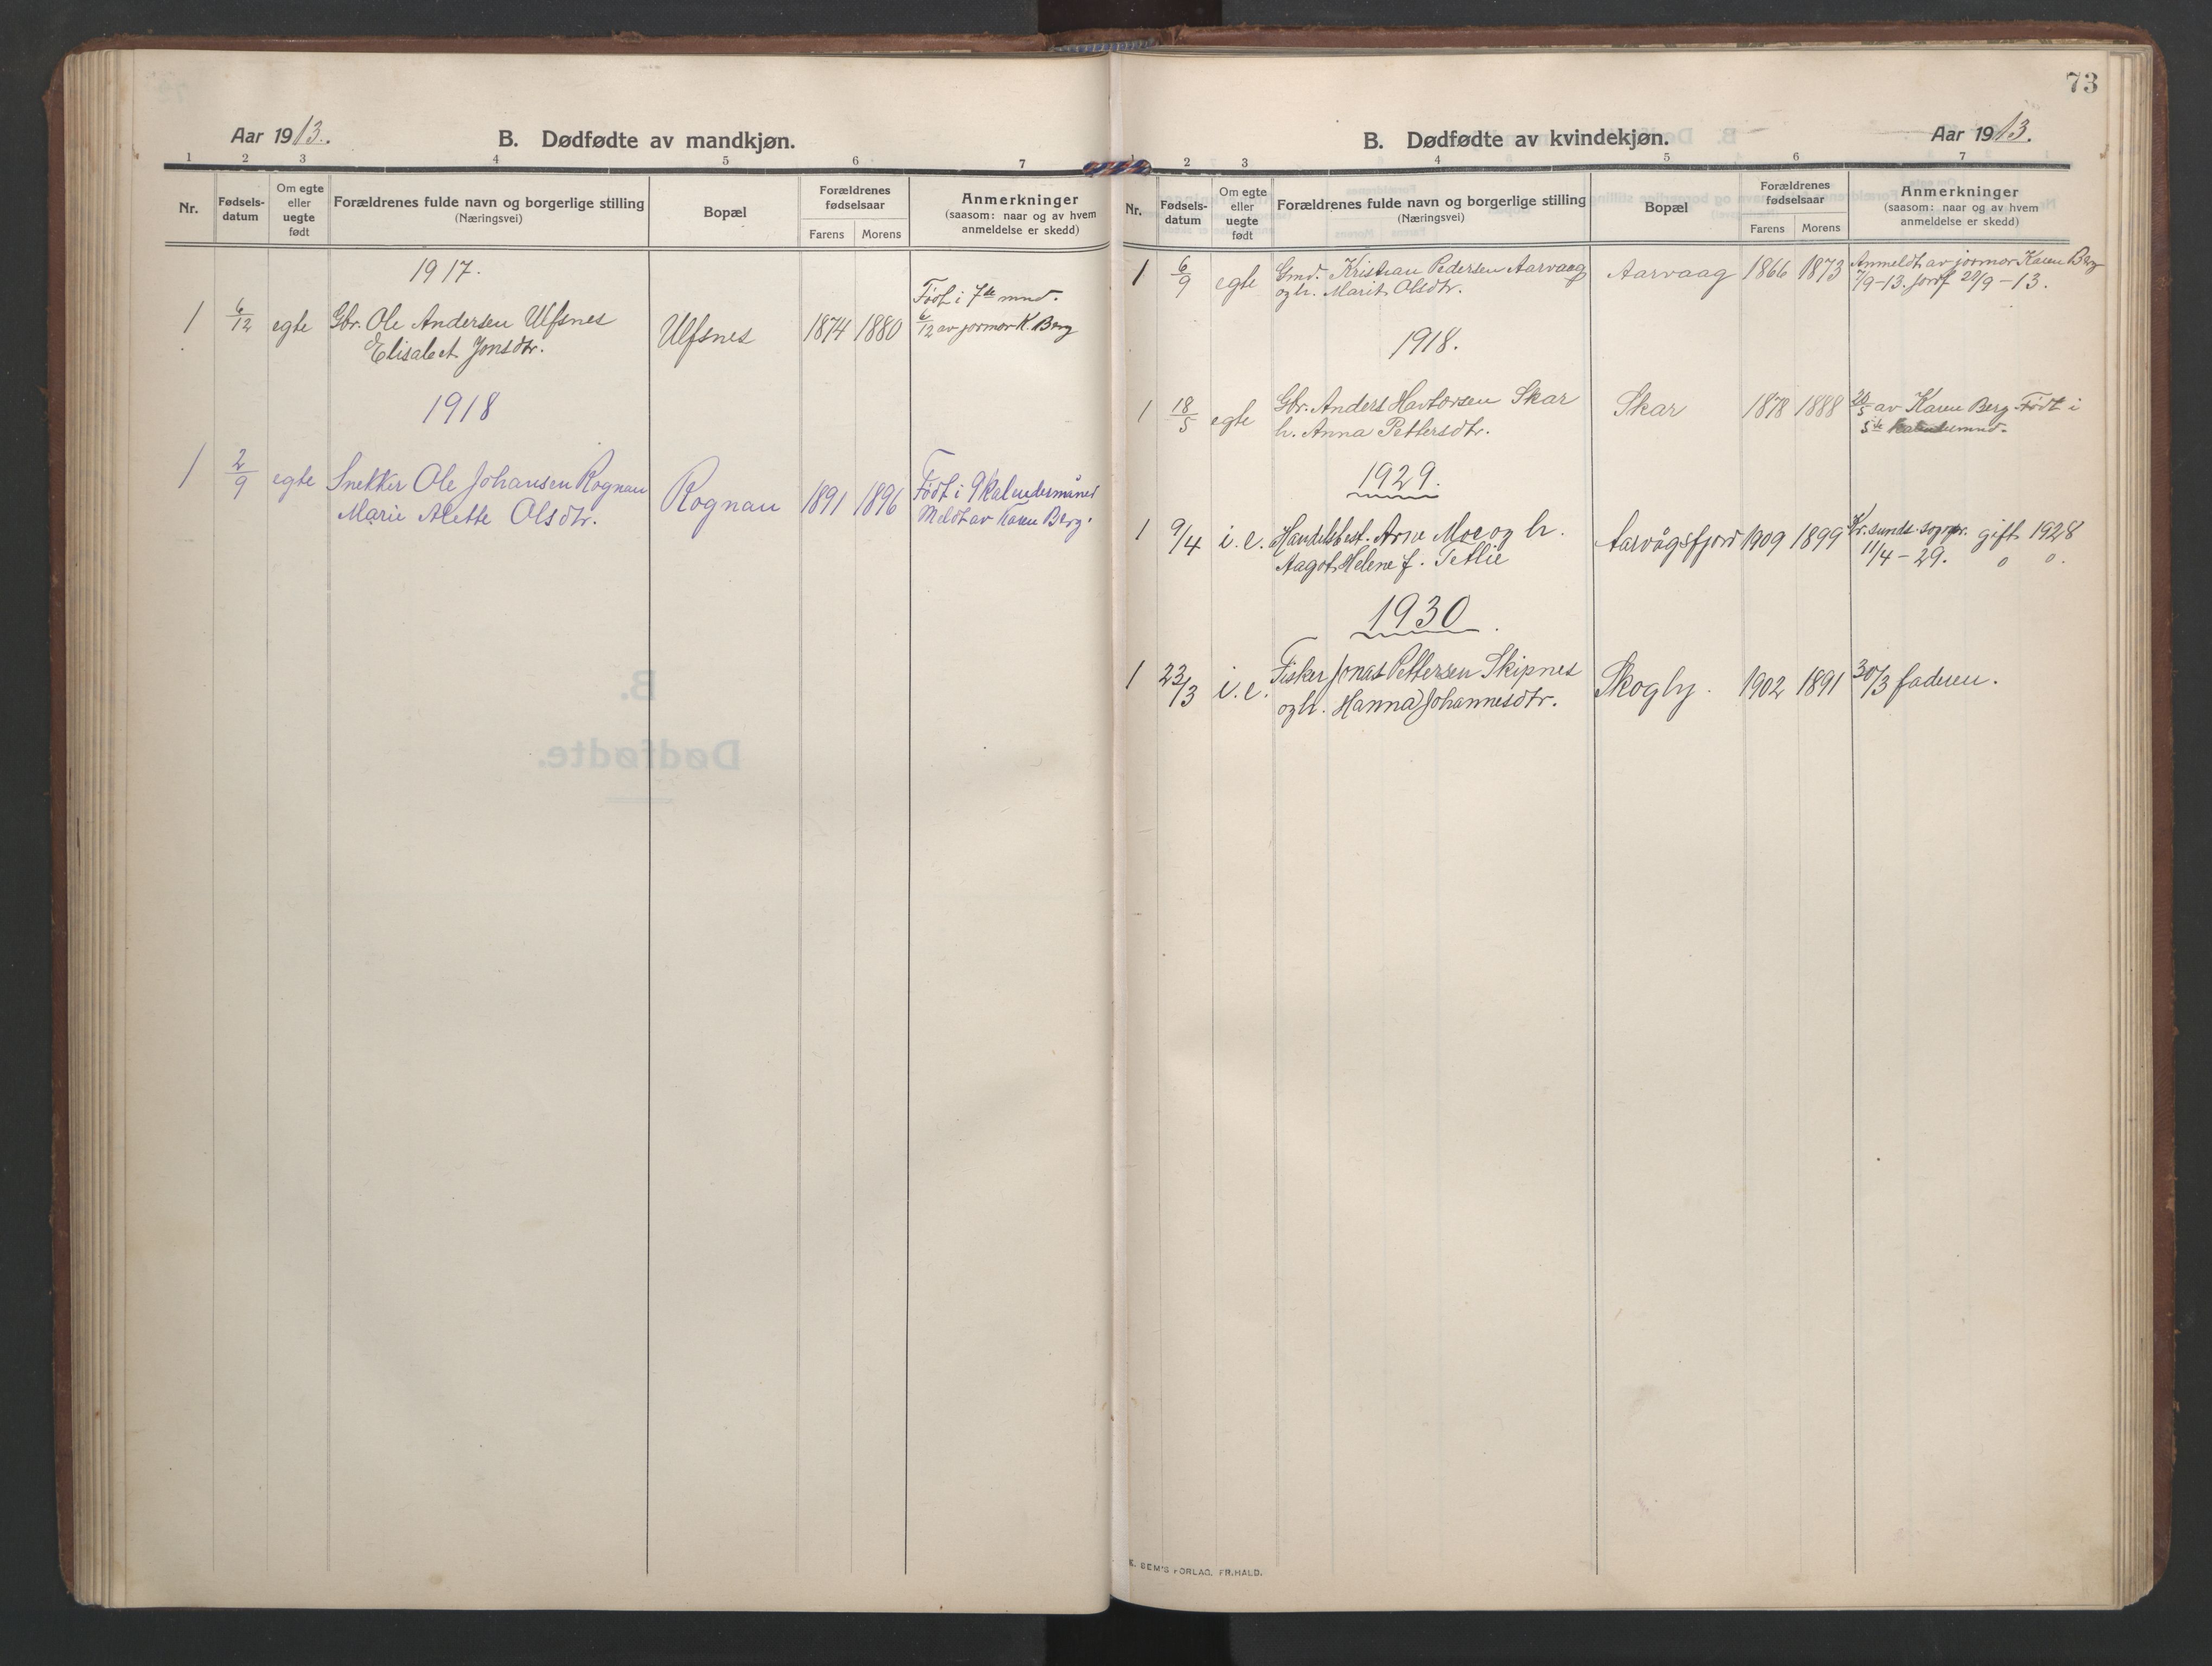 Aar 1913.
B. Dødfødte av mandkjøn.
1 2 3 4 5 6 7
Nr.
Fødsels-
datum
Om egte
eller
uegte
født
Forældrenes fulde navn og borgerlige stilling
(Næringsvei)
Bopæl
Forældrenes
fødselsaar
Farens Morens
Anmerkninger
(saasom: naar og av hvem
anmeldelse er skedd)
1917.
1 6/12 egte Gbr. Ole Andersen Ulfsnes
Elisabet Jonsdtr.
Ulfsnes 1874 1880
Født i 7de mnd.
6/12 av jormor K. Berg
1918
1 2/9 egte Snekker Ole Johansen Rognau
Marie Alette Olsdtr.
Rognau 1891 1896
Født i 9 kalendermåned
Meldt av Karen Berg.
73
B. Dødfødte av kvindekjøn.
Aar 1913.
1 2 3 4 5 6 7
Nr.
Fødsels-
datum
Om egte
eller
uegte
født
Forældrenes fulde navn og borgerlige stilling
(Næringsvei)
Bopæl
Forældrenes
fødselsaar
Farens Morens
Anmerkninger
(saasom: naar og av hvem
anmeldelse er skedd)
1 6/9 egte Gmd. Kristian Pedersen Aarvaag
og h. Marit Olsdtr.
Aarvaag 1866 1873
Anmeldt av jormor Karen Berg
7/9-13. jordf 22/9-13.
1918.
1 18/5 egte Gbr. Anders Havtorsen Skar
h. Anna Pettersdtr.
Skar 1878 1888
20/5 av Karen Berg Født i
5te
1929.
1 9/4 i. e. Handelsbest. Arne Moe og h.
Aagot Helene f. Tetlie
Aarvågsfjord 1909 1899
Kr.sunds sognepr. gift 1928
11/4-29. " ".
1930.
1 23/3 i. e. Fisker Jonas Pettersen Skipnes
og h. Hanna Johannesdtr.
Skogly. 1902 1891
30/3 faderen.
B.
Dødfødte.
E. SEM'S FORLAG. FR.HALD.